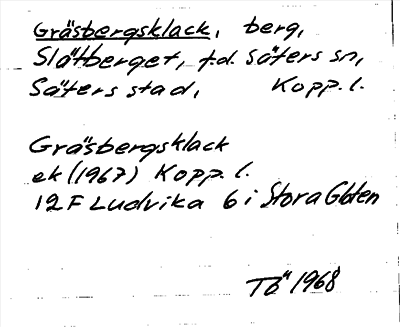 Gräsbergsklack, berg,
Slätberget, f.d. Säters sn,
Säters stad, Kopp. l.
Gräsbergsklack
ek (1967) Kopp. l.
12F Ludvika 6 i Stora Gloten
Tö 1968